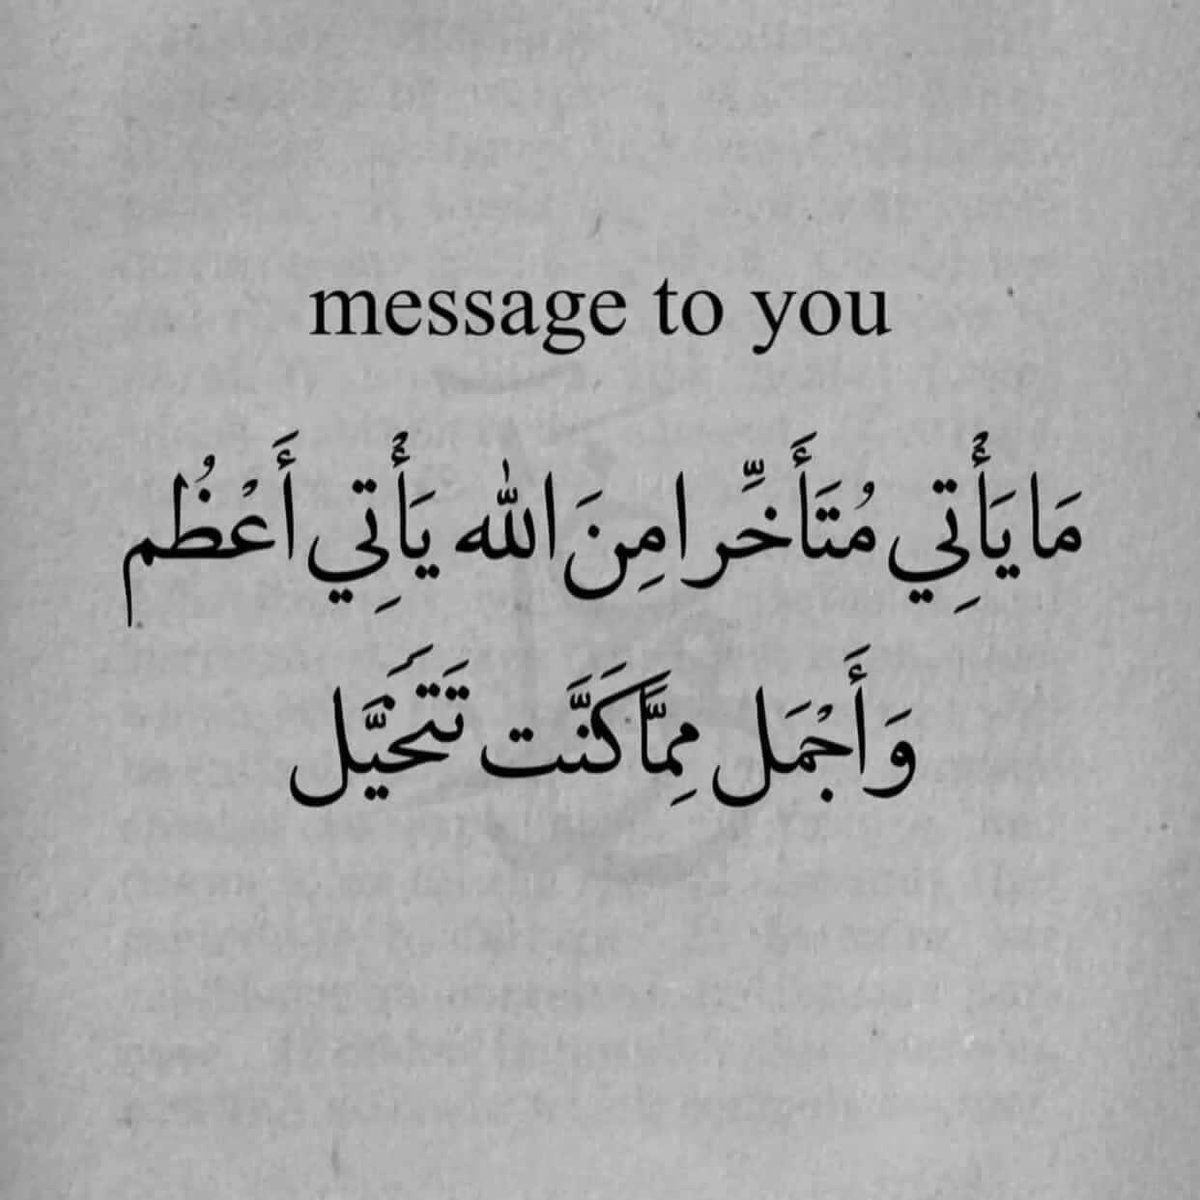 message to you
مَا يَأْتِي مُتَأَخِّرا مِنَ الله يَأْتِي أَعْظُم
وَأَجْمَل مِمَّا كَنَّت تَتَخَيَّل